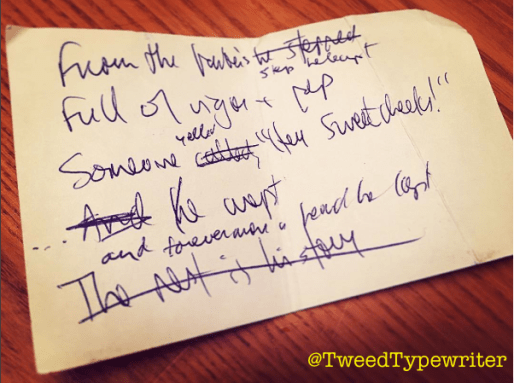 From the barber's he stepped
step he leapt
Full of vigor + pep
yelled
Someone called, "Hey Sweetcheeks!"
... And he wept
and forevermore a beard he kept
The rest is history
@TweedTypewriter